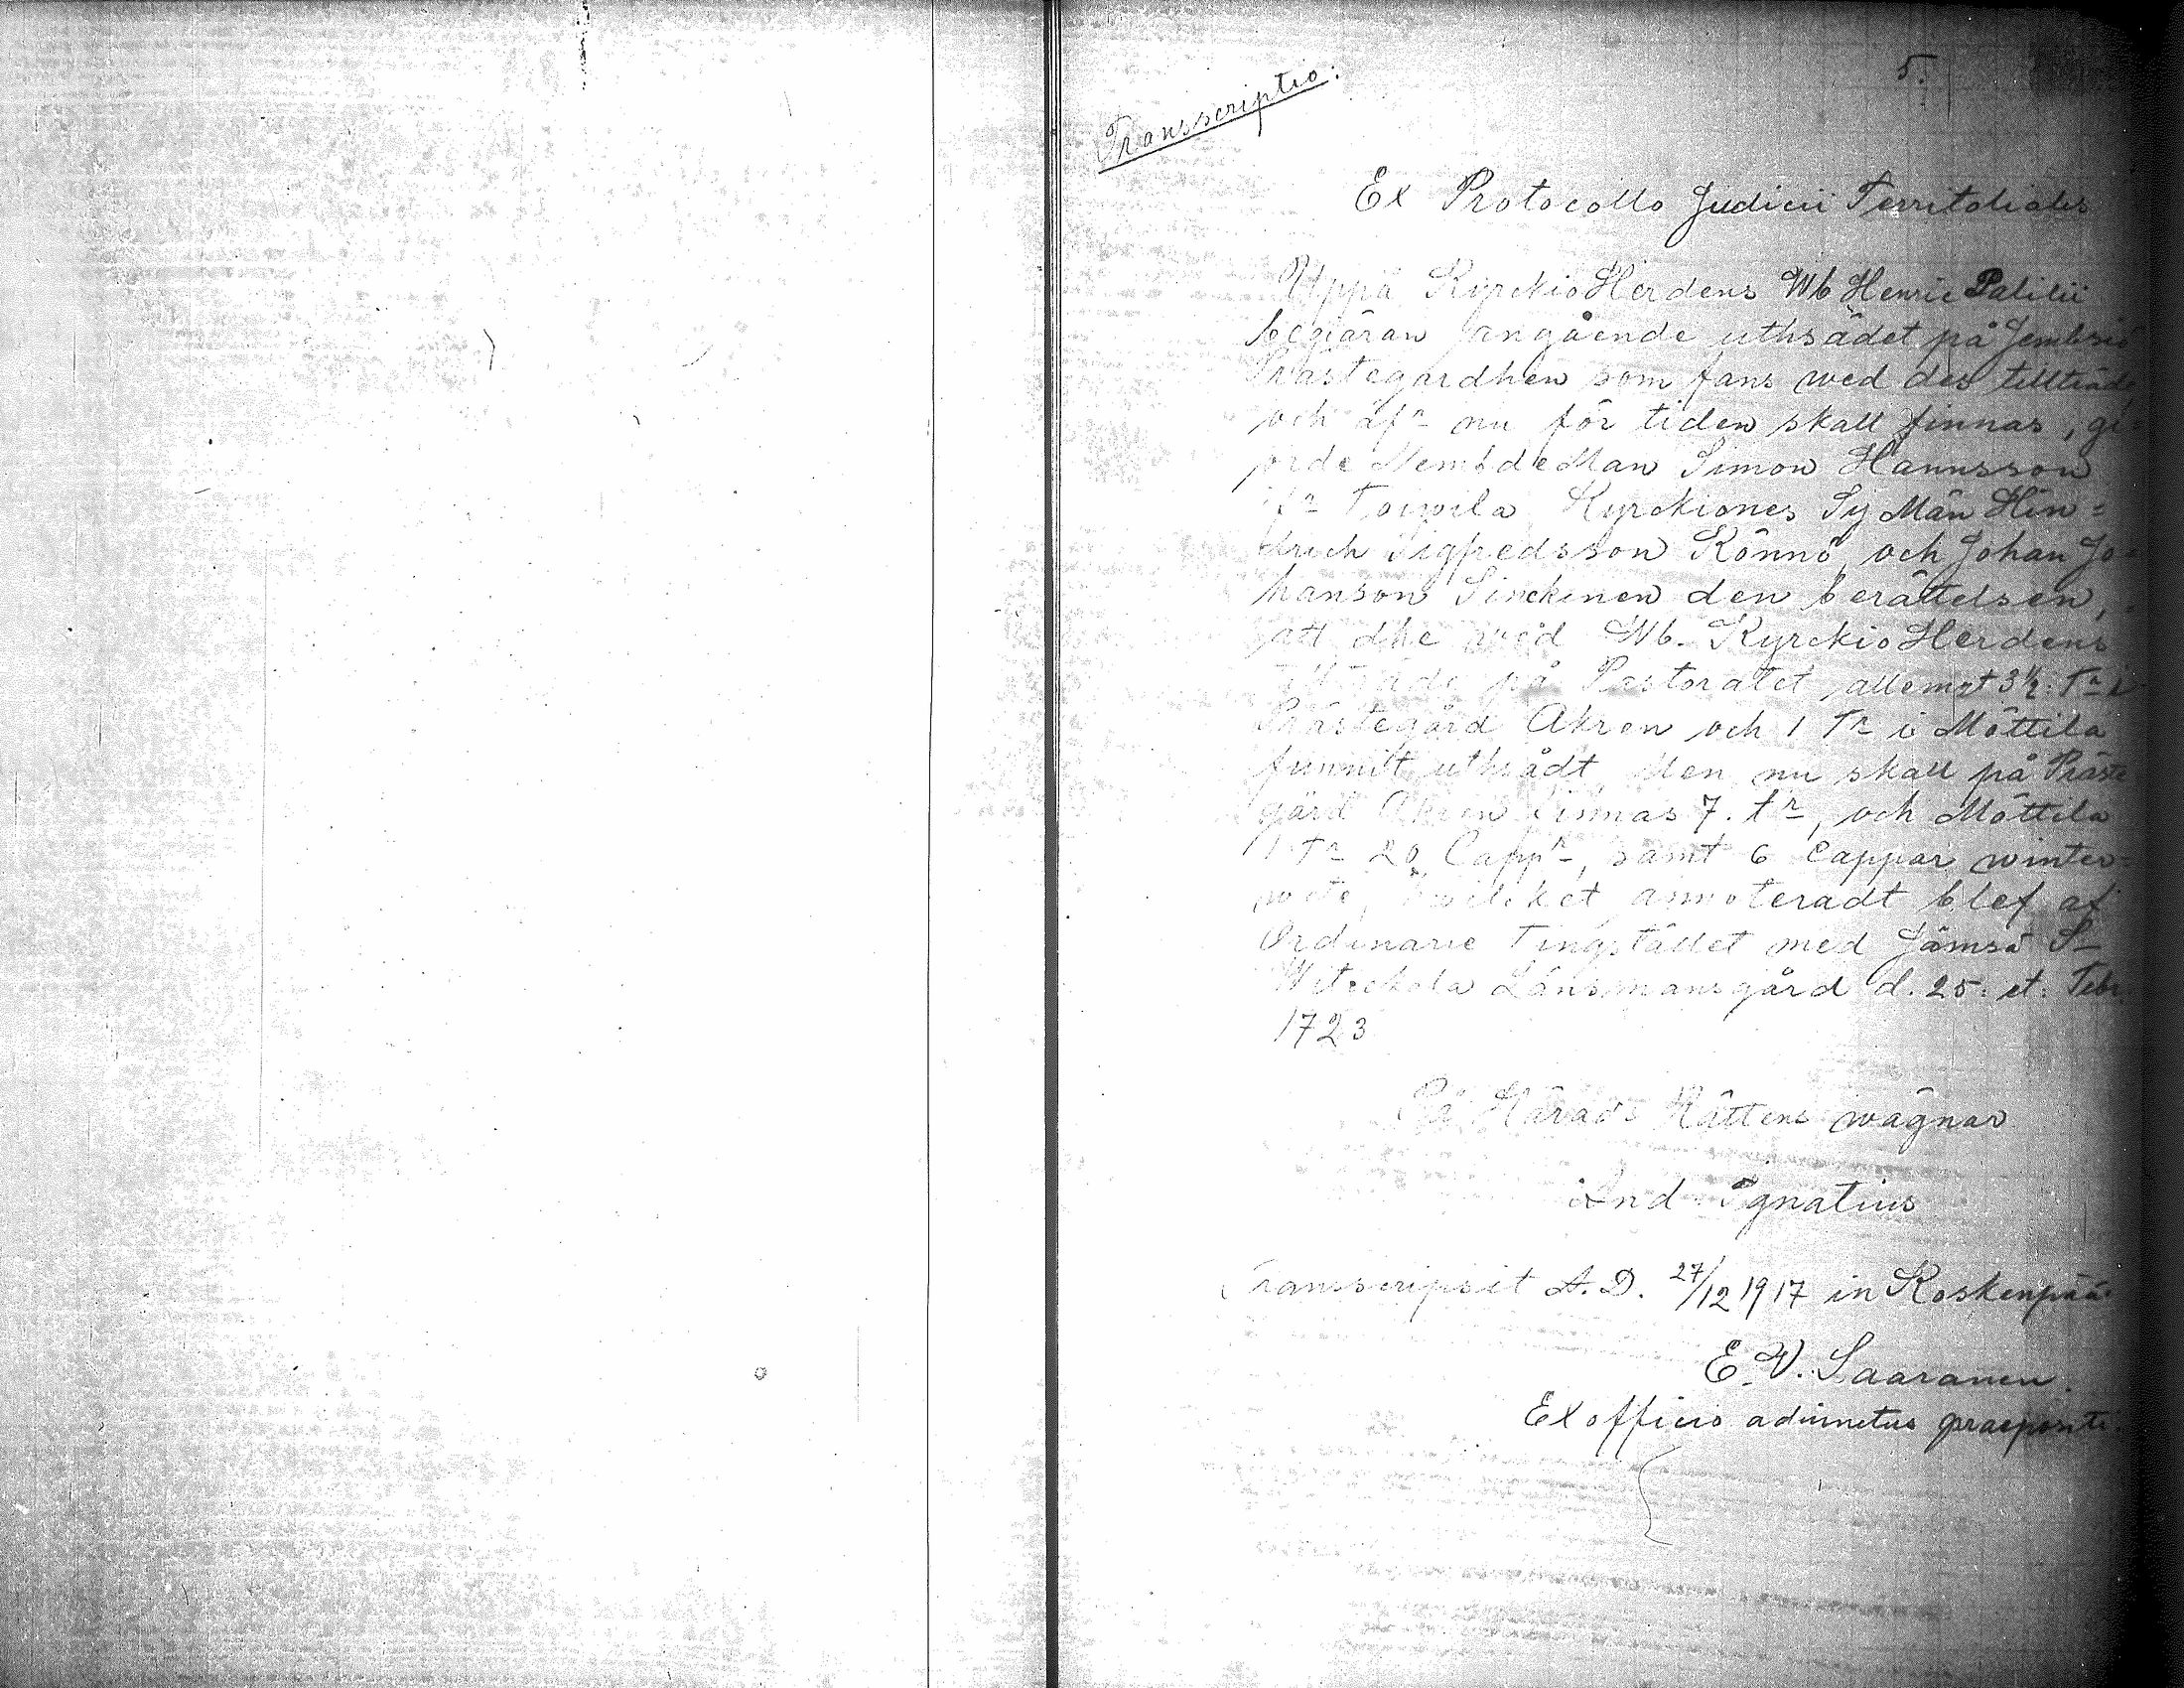 5.
Transscriptio:
Ex Protocollo Judicii Territoliales
Uppå KyrckioHerdens Wb Henric Palilii
begiäran angående uthsädet på Jembsiö
Prästegårdhen som fans wed des tillträde,
och äfn nu för tiden skall finnas, gi=
orde NembdeMan Simon Hannsson
ifn Toiwila Kyrckiones Sy Män Hin=
drich Sigfredsson Könnö och Johan Jo=
hanson Sinckinen den berättelsen,
att dhe wed Wb. KyrckioHerdens
tillträde på Pastoratet allemst 3½: Tr i
Prästegård Åkren och 1 Tr i Möttila
funnit uthsådt, Men nu skall på Präste
gård Åkren finnas 7. tr, och Möttila
1 Tr 20 Cappr, samt 6 Cappar winter=
wete, hwilcket annoteradt blef af
Ordinarie Tingstället med Jämsä S_
Witickala Länsmansgård d. 25: et: Febr
1723
På Härads Rättens wägnar
And Ignatius
Transcripsit A.D. 27/12 1917 in Koskenpää.
E.V. Saaranen.
Ex officio adiunctus praepositi.